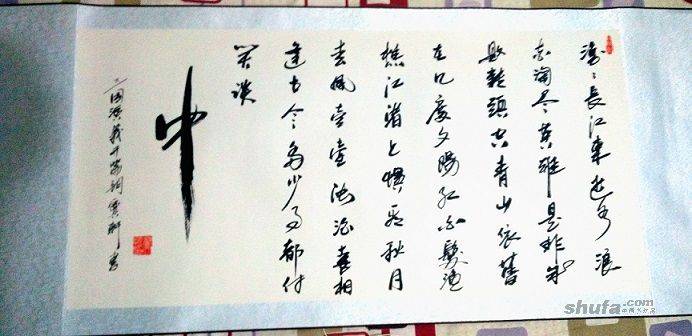 滚滚長江東逝水浪
花淘尽英雄是非成
敗轉頭空青山依舊
在几度夕陽红白髮渔
樵江渚上惯看秋月
春風壹壺浊酒喜相
逢古今多少事都付
笑谈
中
三国演义开篇词
shufa.com